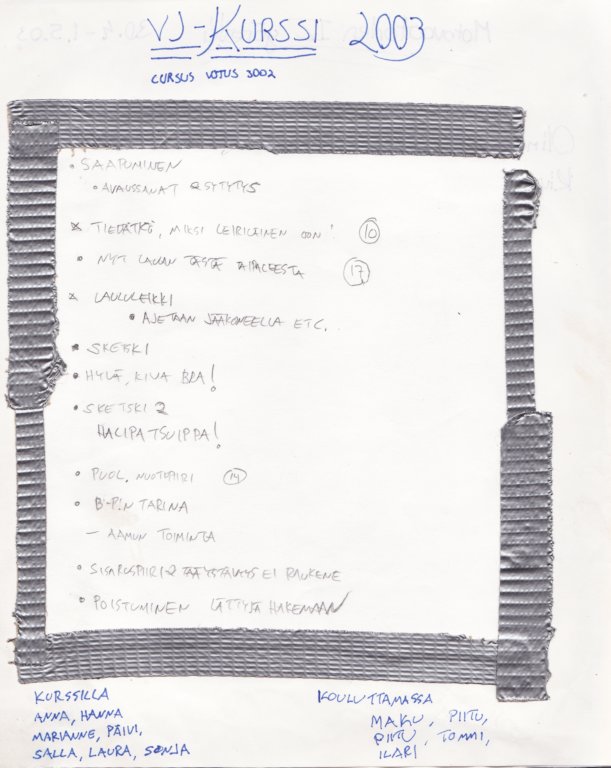 VJ-KURSSI 2003
CURSUS VOTUS 3002
• SAAPUMINEN
• AVAUSSANAT & SYTYTYS
x TIEDÄTKÖ, MIKSI LEIRILÄINEN OON! 10
• NYT LAULAN TÄSTÄ AIHEESTA 17
x LAULULEIKKI
• AJETAAN JÄÄKONEELLA ETC.
• SKETSKI
• HYVÄ, KIVA BRA!
• SKETSKI 2
HALIPATSUIPPA!
• PUOL. NUOTIOPIIRI 14
• B-P:N TARINA
– AAMUN TOIMINTA
• SISARUSPIIRI & YSTÄVYYS EI RAUKENE
• POISTUMINEN LÄTTYJÄ HAKEMAAN
KURSSILLA
ANNA, HANNA
MARIANNE, PÄIVI,
SALLA, LAURA, SONJA
KOULUTTAMASSA
MAKU, PIITU,
PIITU, TOMMI,
ILARI